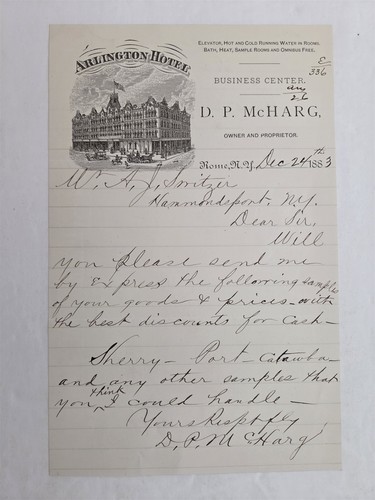 ARLINGTON HOTEL
ELEVATOR, HOT AND COLD RUNNING WATER IN ROOMS.
BATH, HEAT, SAMPLE ROOMS AND OMNIBUS FREE.
E
336
BUSINESS CENTER.
26
D. P. McHARG,
OWNER AND PROPRIETOR.
Rome, N.Y. Dec 24th 1883
A. J. Switzer
Hammondsport, N.Y.
Dear Sir,
Will
you please send me
by Express the following samples
of your goods & prices - with
the best discounts for Cash -
Sherry - Port - Catawba
and any other samples that
you think I could handle -
Yours Respt fly
D. P. McHarg